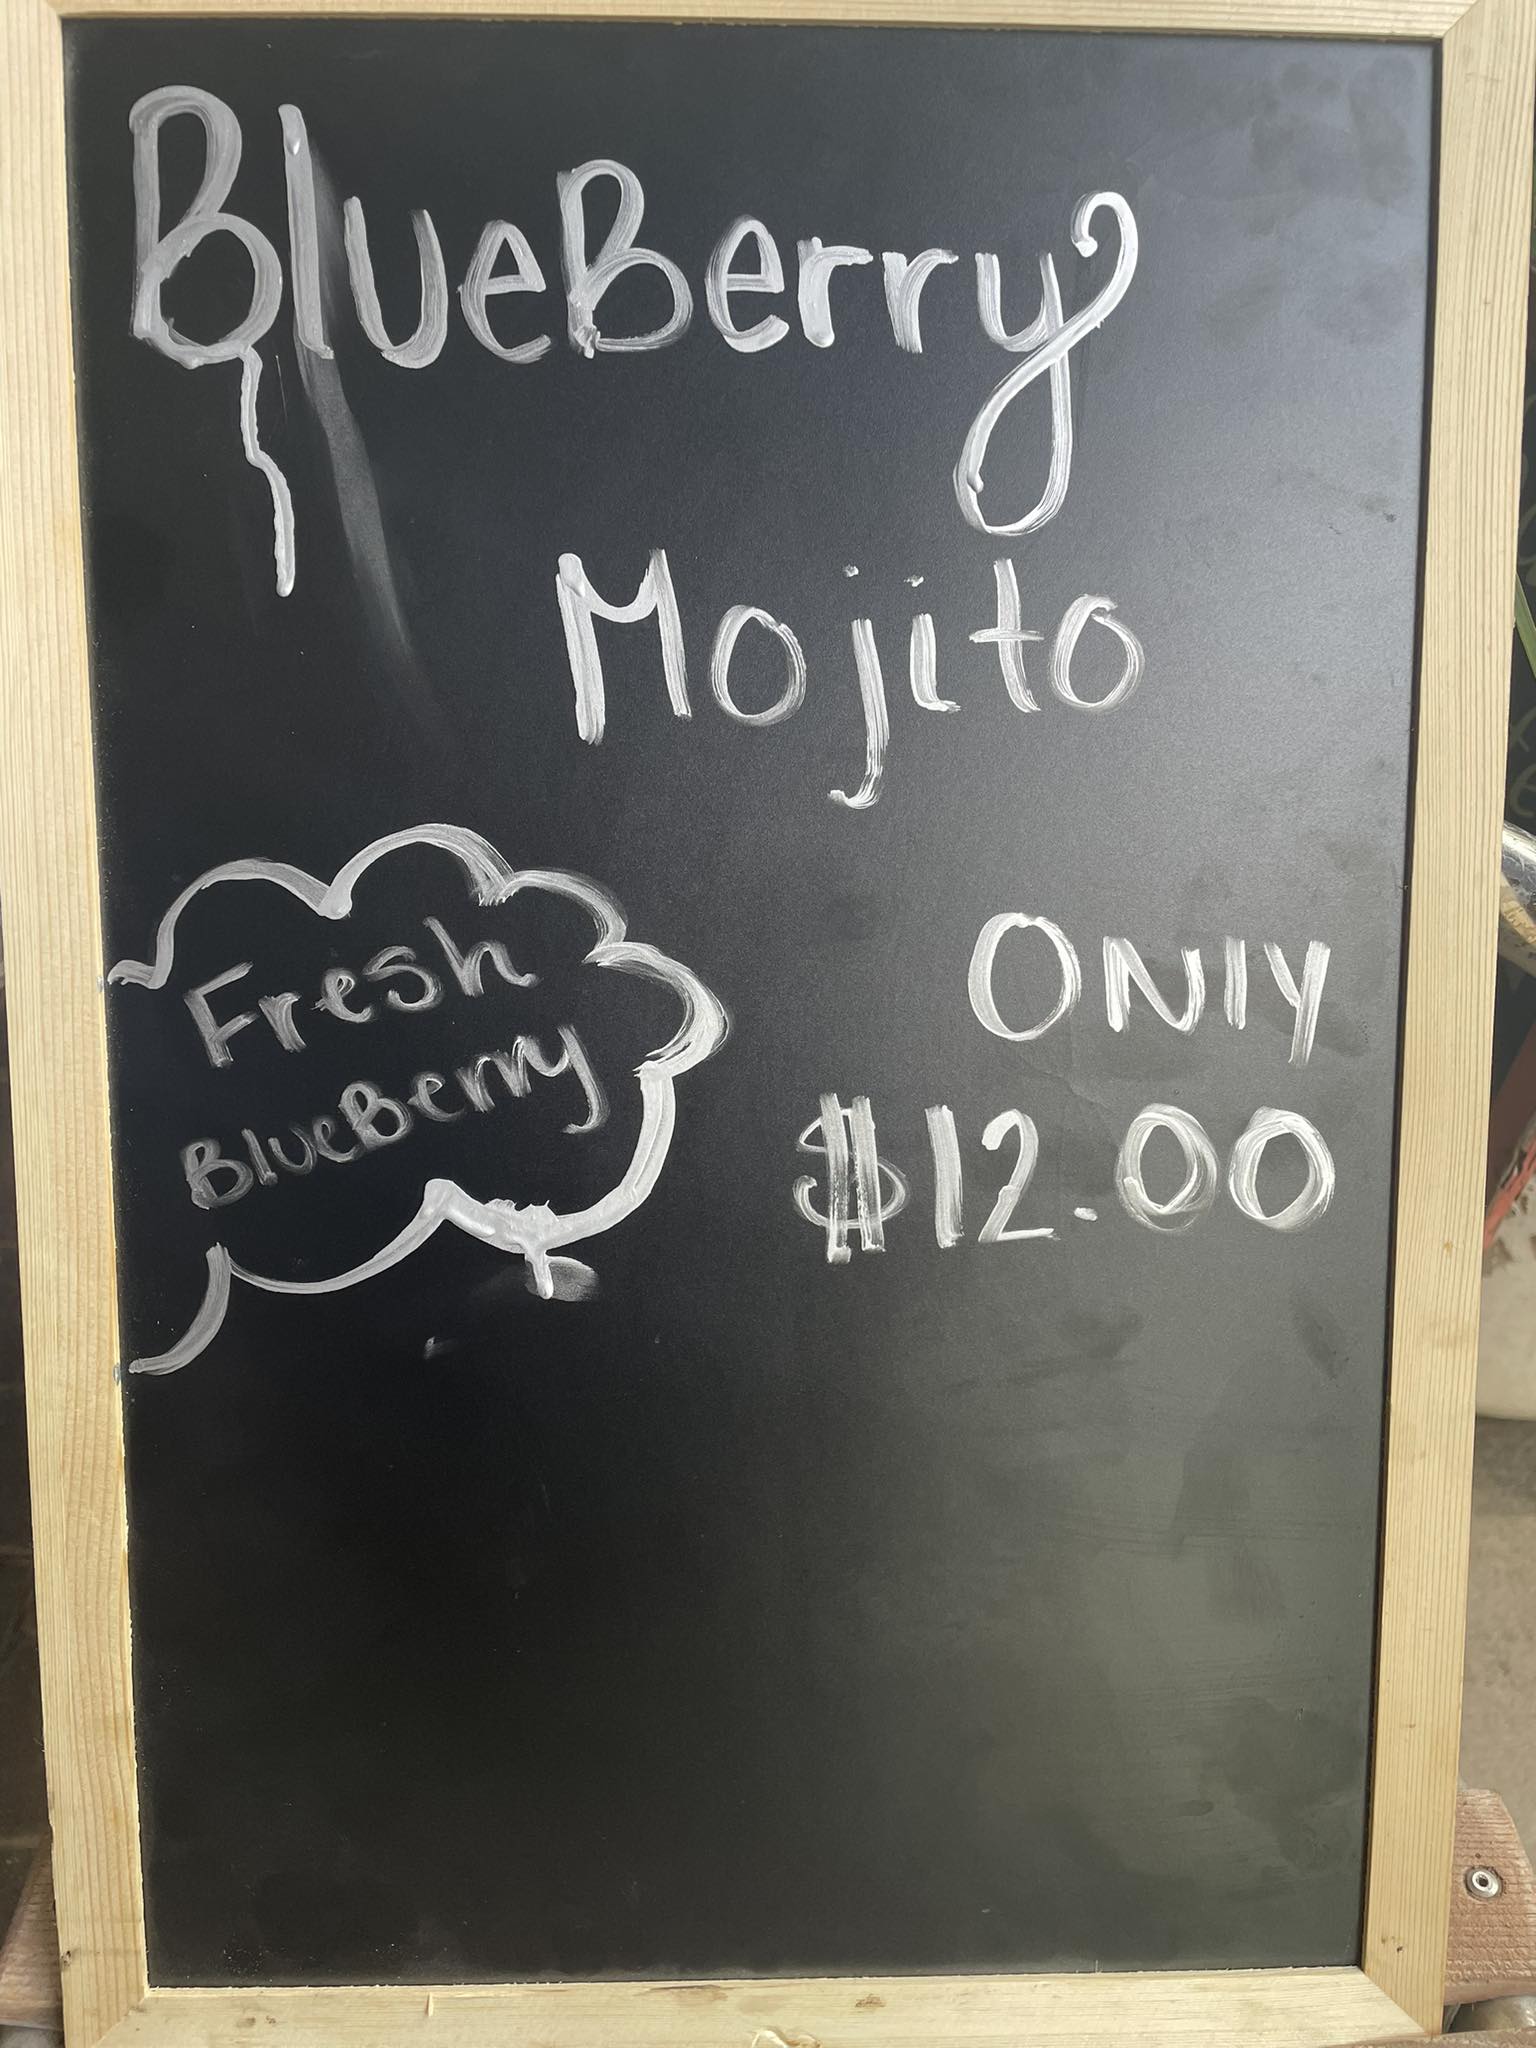 BlueBerry
Mojito
Fresh
BlueBerry
ONly
$12.00